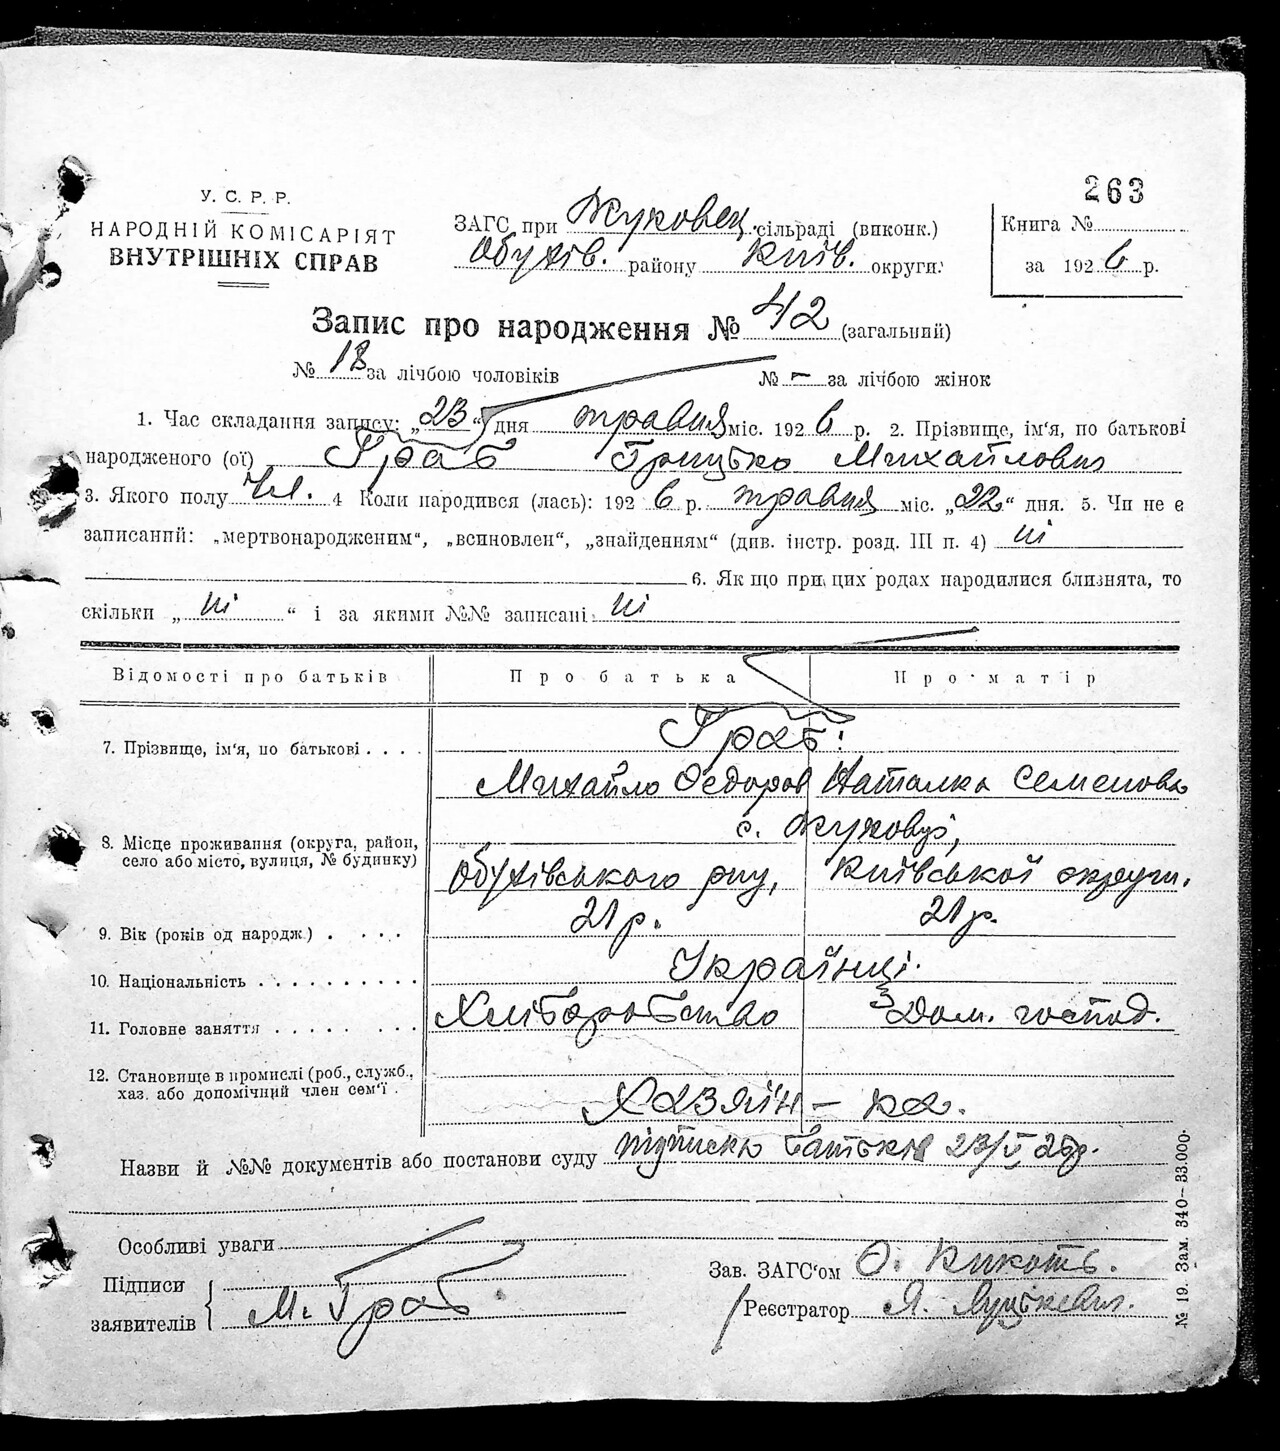 263
У. С. Р. Р.
НАРОДНІЙ КОМІСАРІЯТ
ВНУТРІШНІХ СПРАВ
ЗАГС при Жуковец. сільраді (виконк.)
Обухів. району Київ. округи.
Книга №
за 1926 р.
Запис про народження № 42 (загальний)
№ 18 за лічбою чоловіків № – за лічбою жінок
1. Час складання запису: „23“ дня травня міс. 1926 р. 2. Прізвище, ім'я, по батькові
народженого (ої) Граб Грицько Михайлович
3. Якого полу Чл. 4 Коли народився (лась): 1926 р. травня міс. „22“ дня. 5. Чи не є
записаний: „мертвонародженим“, „всиновлен“, „знайденням“ (див. інстр. розд. III п. 4) ні
6. Як що при цих родах народилися близнята, то
скільки „ ні “ і за якими №№ записані: ні
Відомості про батьків Про батька Про матір
7. Прізвище, ім'я, по батькові . . . . Граб:
Михайло Федоров Наталка Семенова
8. Місце проживання (округа, район,
село або місто, вулиця, № будинку)
с. Жуковці,
Обухівського р-ну, Київської округи.
9. Вік (років од народж.) . . . . 21 р. 21 р.
10. Національність . . . . . . . . . . Українці.
11. Головне заняття . . . . . . . . . Хліборобство Дом. господ.
12. Становище в промислі (роб., служб.,
хаз. або допомічний член сем'ї .
Хазяїн – ка.
Назви й №№ документів або постанови суду підписки батьків 23/V 26 р.
Особливі уваги
Підписи
заявителів М. Граб.
Зав. ЗАГС'ом О. Кикоть.
Реєстратор Я. Луцкевич.
№ 19. Зам. 340—33.000.